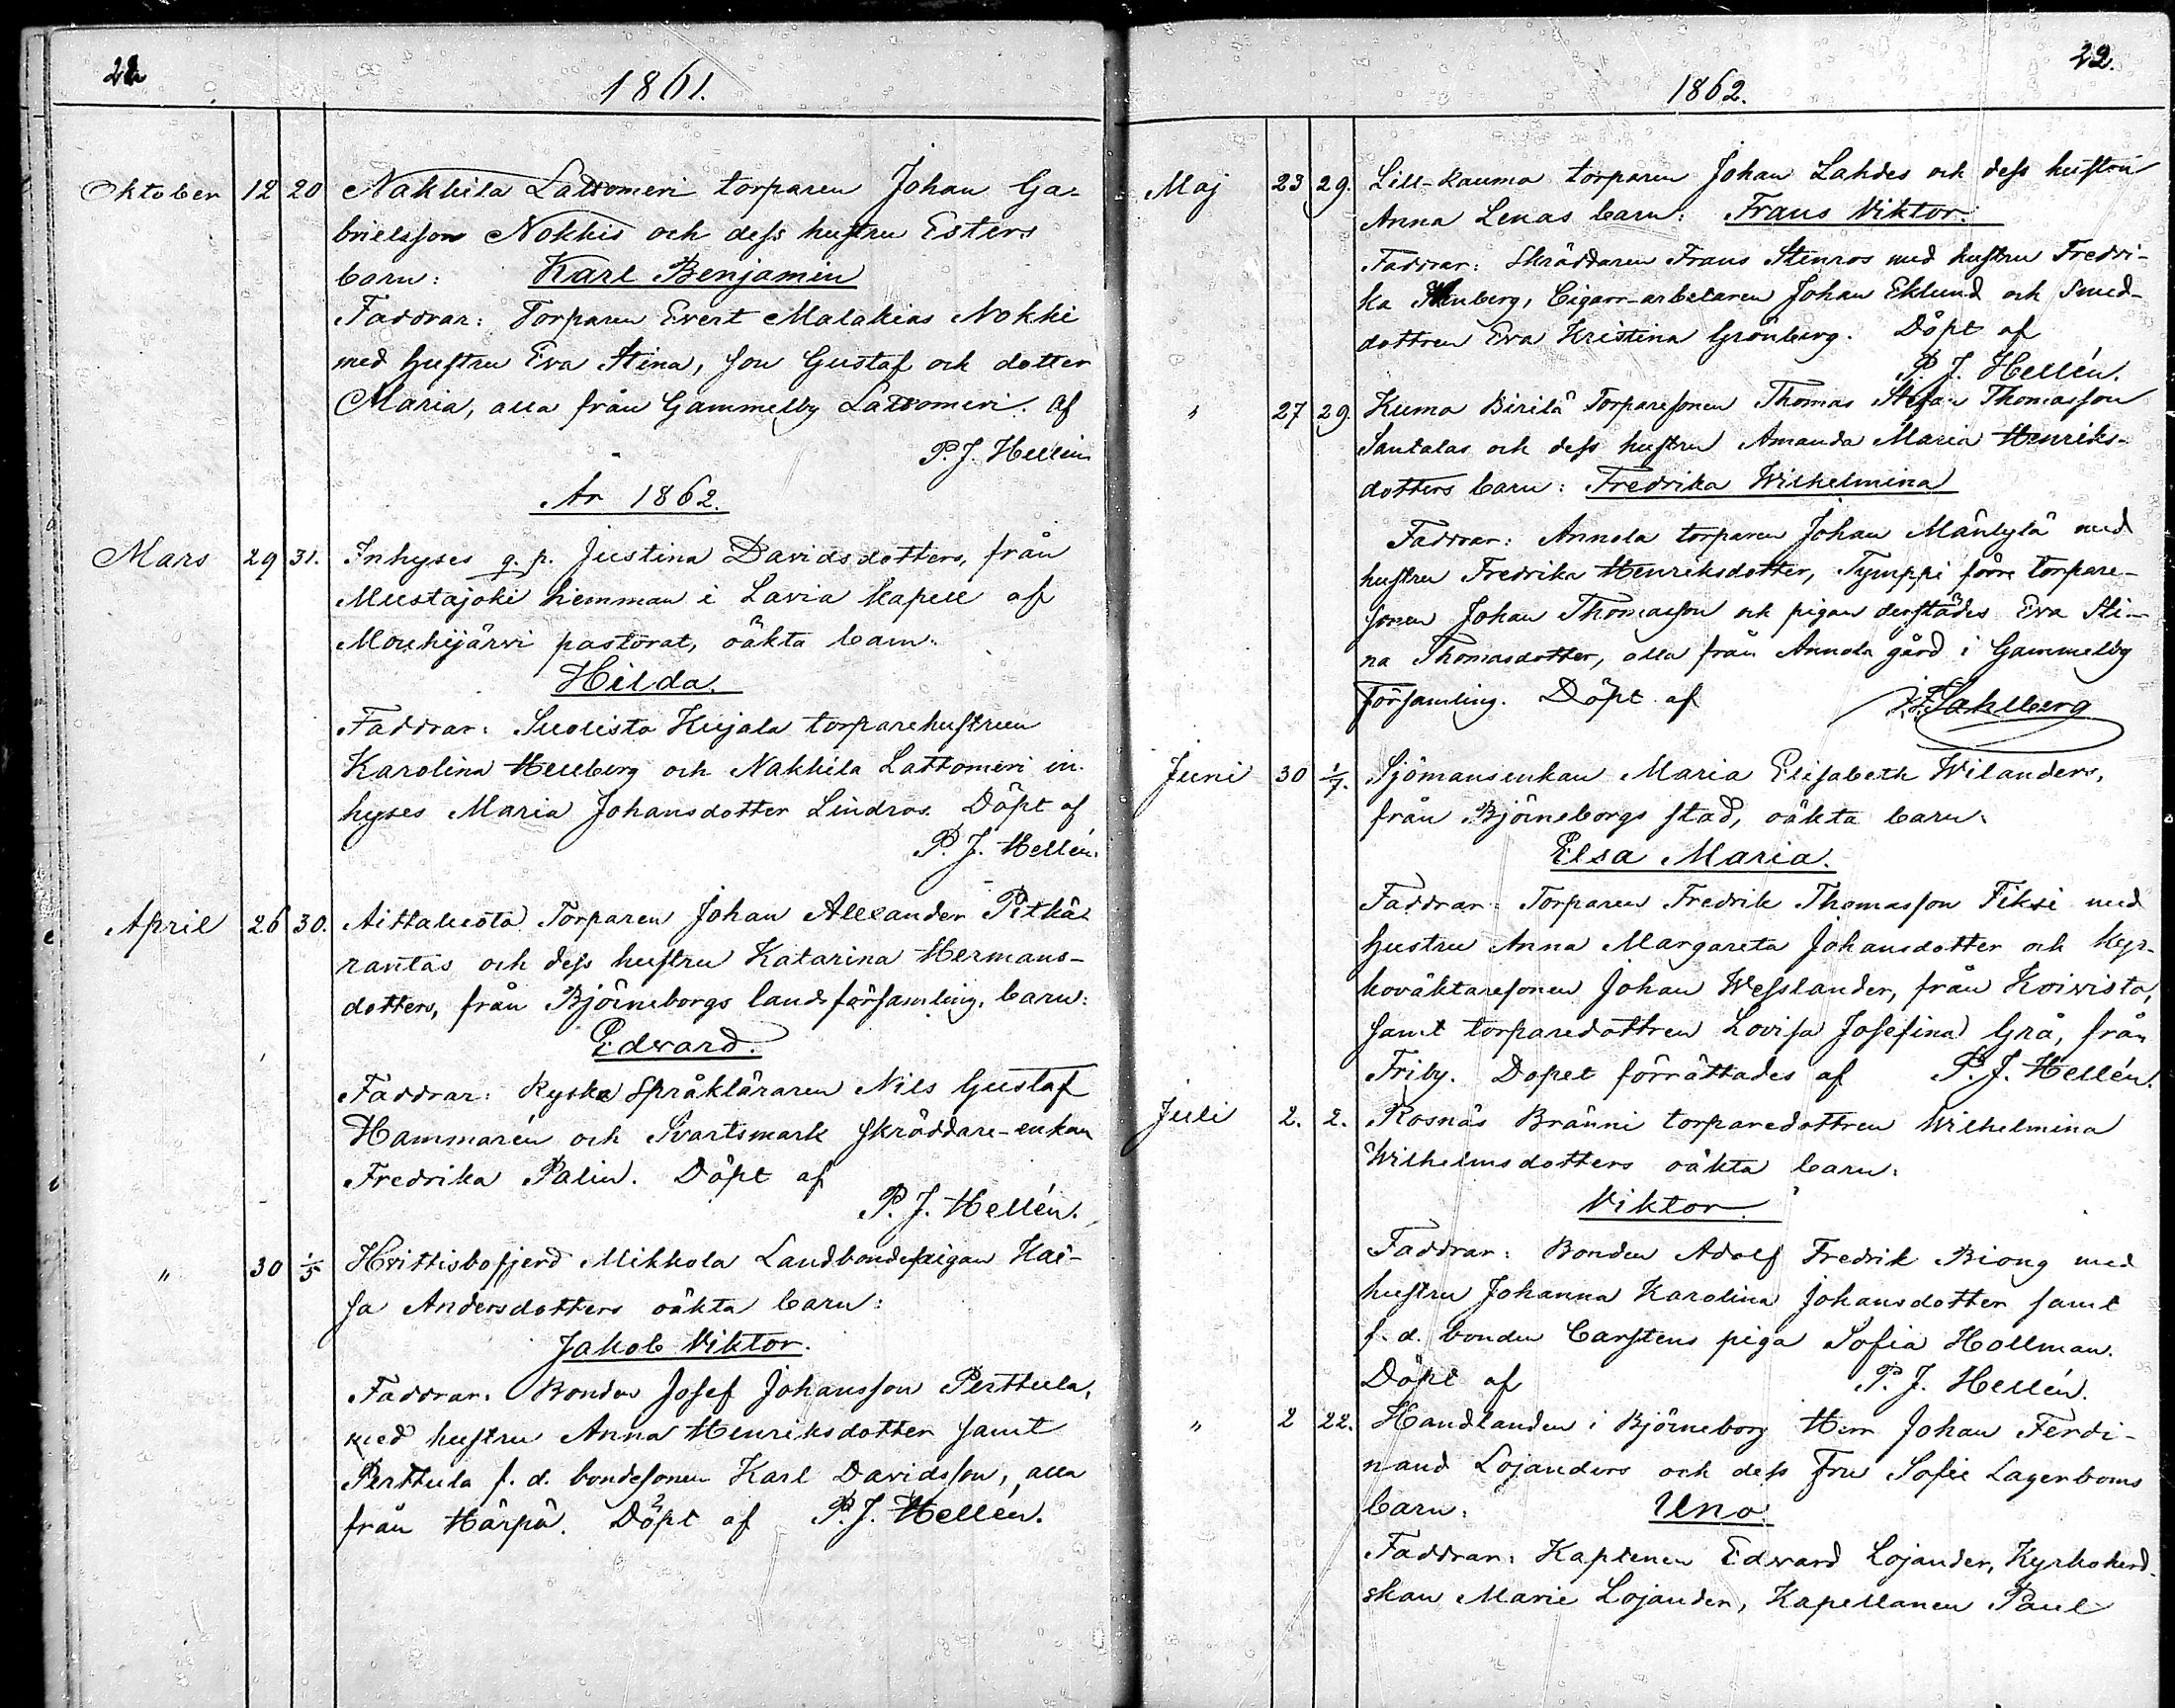 22
1861.
Oktober 12 20 Nakkila Lattomeri torparen Johan Ga-
brielsson Nokkis och dess hustru Esters
barn: Karl Benjamin
Faddrar: Torparen Evert Malakias Nokki
med hustru Eva Stina, son Gustaf och dotter
Maria, alla från Gammelby Lattomeri. Af
P. J. Hellén
År 1862.
Mars 29 31. Inhyses q. p. Justina Davidsdotters, från
Mustajoki hemman i Lavia kapell af
Mouhijärvi pastorat, oäkta barn.
Hilda.
Faddrar: Suolisto Kujala torparehustrun
Karolina Hellberg och Nakkila Lattomeri in-
hyses Maria Johansdotter Lindros. Döpt af
P. J. Hellén.
April 26 30. Aittaluoto Torparen Johan Alexander Pitkä-
rantas och dess hustru Katarina Hermans-
dotters, från Björneborgs landsförsamling, barn:
Edvard.
Faddrar: Ryska Språkläraren Nils Gustaf
Hammarén och Svartsmark Skräddare-enkan
Fredrika Palin. Döpt af
P. J. Hellén.
" 30 1/5 Hvittisbofjerd Mikkola Landbondepigan Kai-
sa Andersdotters oäkta barn:
Jakob Viktor.
Faddrar: Bonden Josef Johansson Perttula,
med hustru Anna Henriksdotter samt
Perttula f. d. bondesonen Karl Davidsson, alla
från Härpö. Döpt af P. J. Hellén.
22.
1862.
Maj 23 29. Lill-Rauma torparen Johan Lahdes och dess hustru
Anna Lenas barn: Frans Viktor.
Faddrar: Skräddaren Frans Stenros med hustru Fredri-
ka Cigarr-arbetaren Johan Eklund och Smed-
dottren Eva Kristina Grönberg. Döpt af
P. J. Hellén.
" 27 29. Kumo Birilä Torparesonen Thomas Stefan Thomasson
Santalas och dess hustru Amanda Maria Henriks-
dotters barn: Fredrika Wilhelmina
Faddrar: Annola torparen Johan Mäntylä med
hustru Fredrika Henriksdotter, Tymppi förre torpare-
sonen Johan Thomasson och pigan derstädes Eva Sti-
na Thomasdotter, alla från Annola gård i Gammelby
församling. Döpt af Sahlberg
Juni 30 1/7. Sjömansenkan Maria Elisabeth Wilanders,
från Björneborgs stad, oäkta barn.
Elsa Maria.
Faddrar: Torparen Fredrik Thomasson Fiksi med
hustru Anna Margareta Johansdotter och kyr-
koväktaresonen Johan Wesslander, från Koivisto,
samt torparedottren Lovisa Josefina Grå, från
Friby. Dopet förrättades af P. J. Hellén.
Juli 2. 2. Rosnäs Bränni torparedottren Wilhelmina
Wilhelmsdotters oäkta barn:
Viktor.
Faddrar: Bonden Adolf Fredrik Biong med
hustru Johanna Karolina Johansdotter samt
f. d. bonden Carstens piga Sofia Hollman.
Döpt af P. J. Hellén.
" 2 22. Handlanden i Björneborg Herr Johan Ferdi-
nand Lojanders och dess Fru Sofie Lagerboms
barn: Uno.
Faddrar: Kaptenen Edvard Lojander, Kyrkoherd-
skan Marie Lojander, Kapellanen Paul